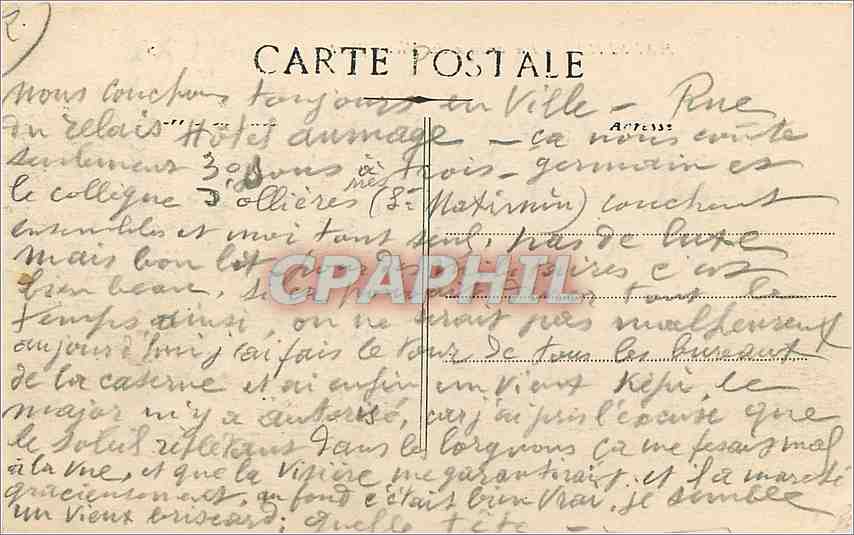 2)
CARTE POSTALE
nous couchons toujours en Ville – Rue
du relais Hôtel dumage – ça nous coûte
Adresse
seulement 30 sous à trois – germain et
le collègue D'ollières (St Maximin) couchent
ensembles et moi tout seul, pas de luxe
mais bon lit pour des militaires c'est
bien beau, si tout le
temps ainsi, on ne serait pas malheureux
aujourd'hui j'ai fais le tour de tous les bureaux
de la caserne et ai enfin un vieux Képi, le
major m'y a autorisé, car j'ai pris l'excuse que
le soleil reflétant dans le lorgnons ça me fesait mal
à la vue, et que la visière me garantirait et il a marché
gracieusement, au fond c'était bien vrai, je semble
un vieux briscard, quelle tête –
CPAPHIL